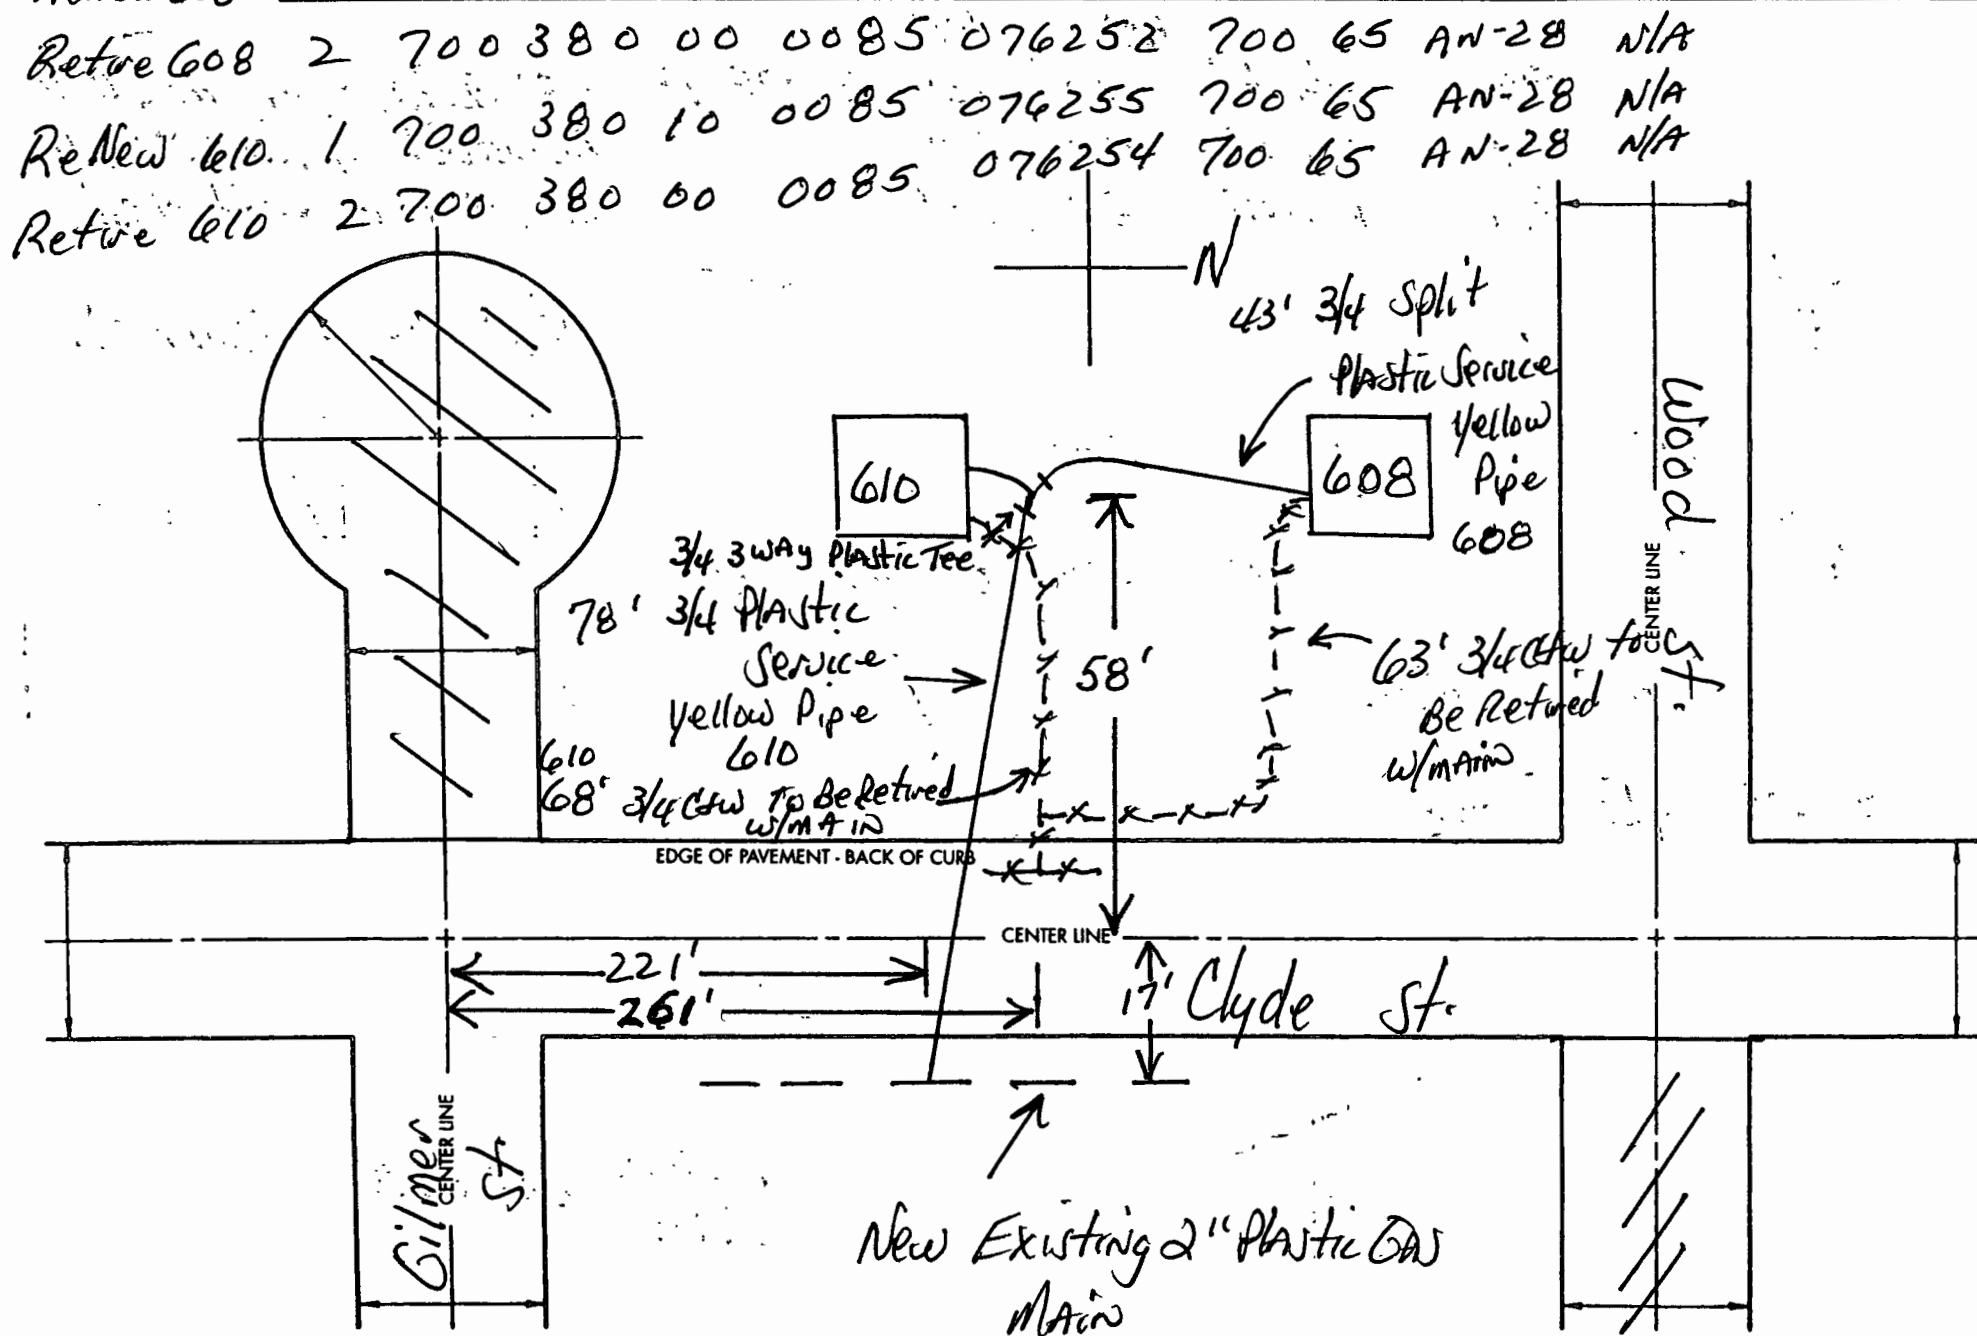 Retire 608 2 700 380 00 0085 076252 700 65 AN-28 N/A
ReNew 610 1 700 380 10 0085 076255 700 65 AN-28 N/A
Retire 610 2 700 380 00 0085 076254 700 65 AN-28 N/A
N
43' 3/4 Split
Plastic Service
Yellow
Pipe
608
610
608
Wood St.
CENTER LINE
3/4 3 WAY Plastic Tee
78' 3/4 Plastic
Service
Yellow Pipe
610
58'
63' 3/4 C&W to
Be Retired
w/MAIN
610
68' 3/4 C&W To Be Retired
w/MAIN
EDGE OF PAVEMENT - BACK OF CURB
CENTER LINE
221'
261'
17'
Clyde St.
Gilmer St
CENTER LINE
New Existing 2" Plastic GAS
MAIN